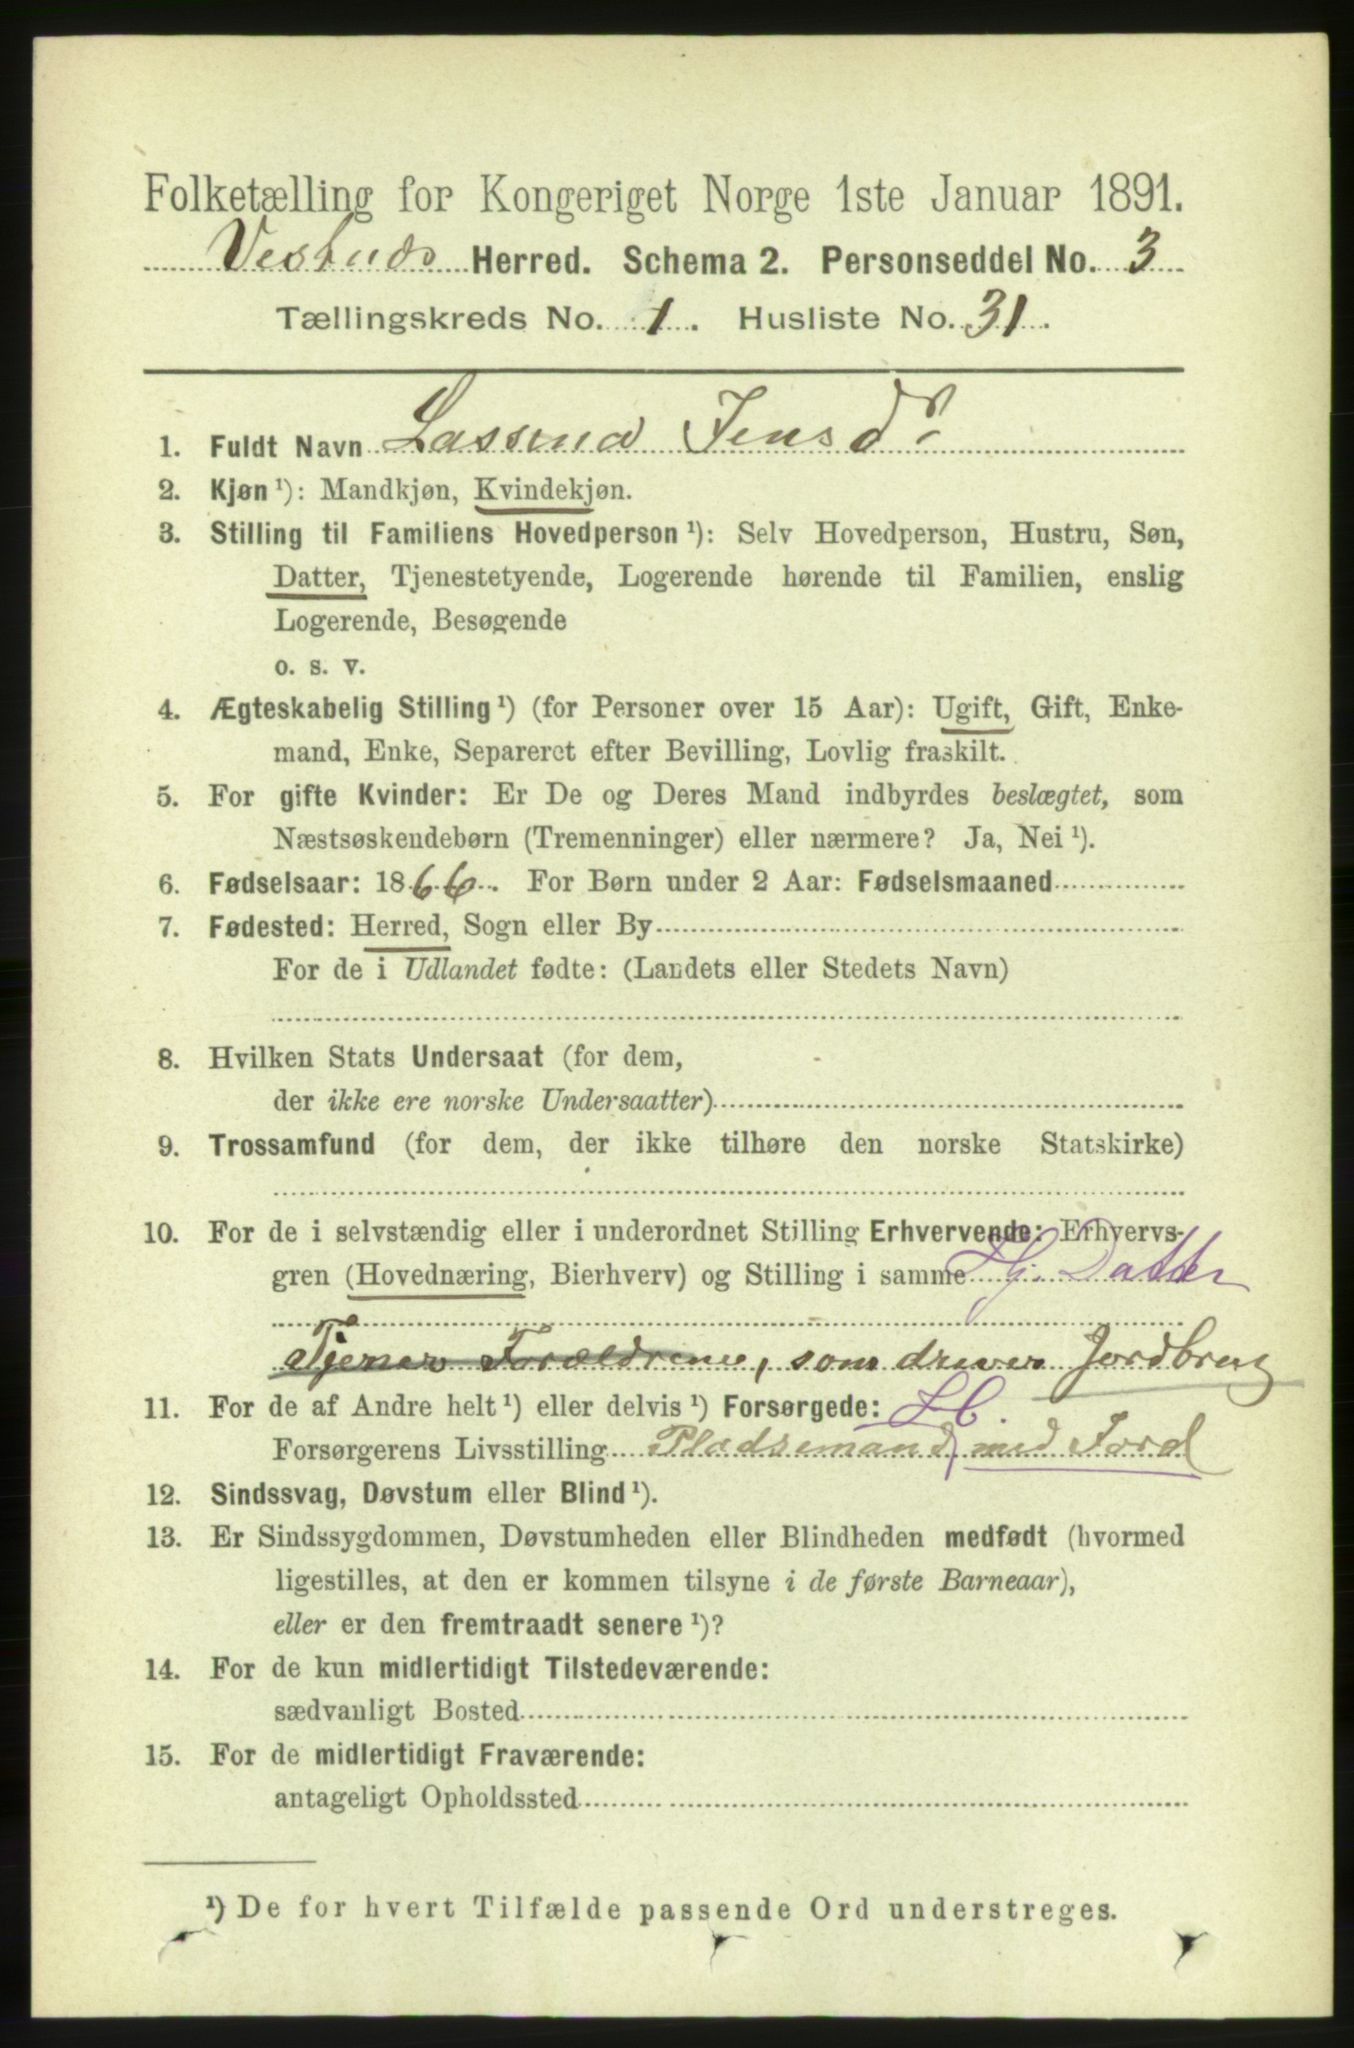 Folketælling for Kongeriget Norge 1ste Januar 1891.
Vestnes Herred. Schema 2. Personseddel No. 3
Tællingskreds No. 1. Husliste No. 31.
1. Fuldt Navn Lassina Jensdr.
2. Kjøn ¹): Mandkjøn, Kvindekjøn.
3. Stilling til Familiens Hovedperson ¹): Selv Hovedperson, Hustru, Søn,
Datter, Tjenestetyende, Logerende hørende til Familien, enslig
Logerende, Besøgende
o. s. v.
4. Ægteskabelig Stilling ¹) (for Personer over 15 Aar): Ugift, Gift, Enke-
mand, Enke, Separeret efter Bevilling, Lovlig fraskilt.
5. For gifte Kvinder: Er De og Deres Mand indbyrdes beslægtet, som
Næstsøskendebørn (Tremenninger) eller nærmere? Ja, Nei ¹).
6. Fødselsaar: 1866. For Børn under 2 Aar: Fødselsmaaned
7. Fødested: Herred, Sogn eller By
For de i Udlandet fødte: (Landets eller Stedets Navn)
8. Hvilken Stats Undersaat (for dem,
der ikke ere norske Undersaatter)
9. Trossamfund (for dem, der ikke tilhøre den norske Statskirke)
10. For de i selvstændig eller i underordnet Stilling Erhvervende: Erhvervs-
gren (Hovednæring, Bierhverv) og Stilling i samme Hj. Datter
Tjener Forældrene, som driver Jordbrug
11. For de af Andre helt ¹) eller delvis ¹) Forsørgede:
Forsørgerens Livsstilling Pladsemand med Jord
12. Sindssvag, Døvstum eller Blind ¹).
13. Er Sindssygdommen, Døvstumheden eller Blindheden medfødt (hvormed
ligestilles, at den er kommen tilsyne i de første Barneaar),
eller er den fremtraadt senere ¹)?
14. For de kun midlertidigt Tilstedeværende:
sædvanligt Bosted
15. For de midlertidigt Fraværende:
antageligt Opholdssted
¹) De for hvert Tilfælde passende Ord understreges.